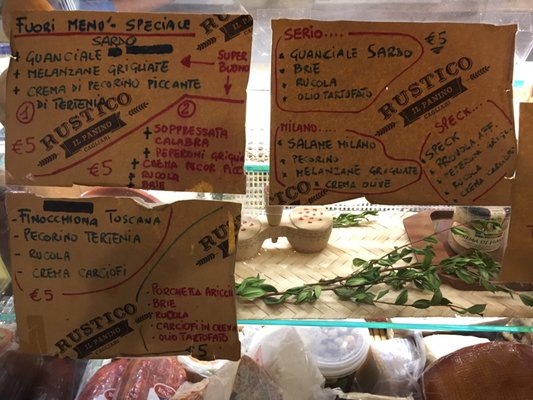 FUORI MENO'- SPECIALE
SARDO
+ GUANCIALE
+ MELANZANE GRIGLIATE
+ CREMA DI PECORINO PICCANTE
DI TERTENIA
SUPER
BUONO
1
€5
2
+ SOPPRESSATA
CALABRA
+ PEPERONI GRIGLIA
+ CREMA PECOR PICC
+ RUCOLA
BRIE
RUSTICO
IL PANINO
CAGLIARI
SERIO....
€5
* GUANCIALE SARDO
* BRIE
* RUCOLA
* OLIO TARTUFATO
RUSTICO
IL PANINO
CAGLIARI
MILANO....
* SALAME MILANO
* PECORINO
* MELANZANE GRIGLIATE
* CREMA OLIVE
SPECK...
SPECK
PROVOLA AFF.
RUCOLA
CREMA
- FINOCCHIONA TOSCANA
- PECORINO TERTENIA
- RUCOLA
- CREMA CARCIOFI
€5
. PORCHETTA ARICCIA
. BRIE
. RUCOLA
. CARCIOFI IN CREMA
. OLIO TARTUFATO
€5
RUSTICO
IL PANINO
CAGLIARI